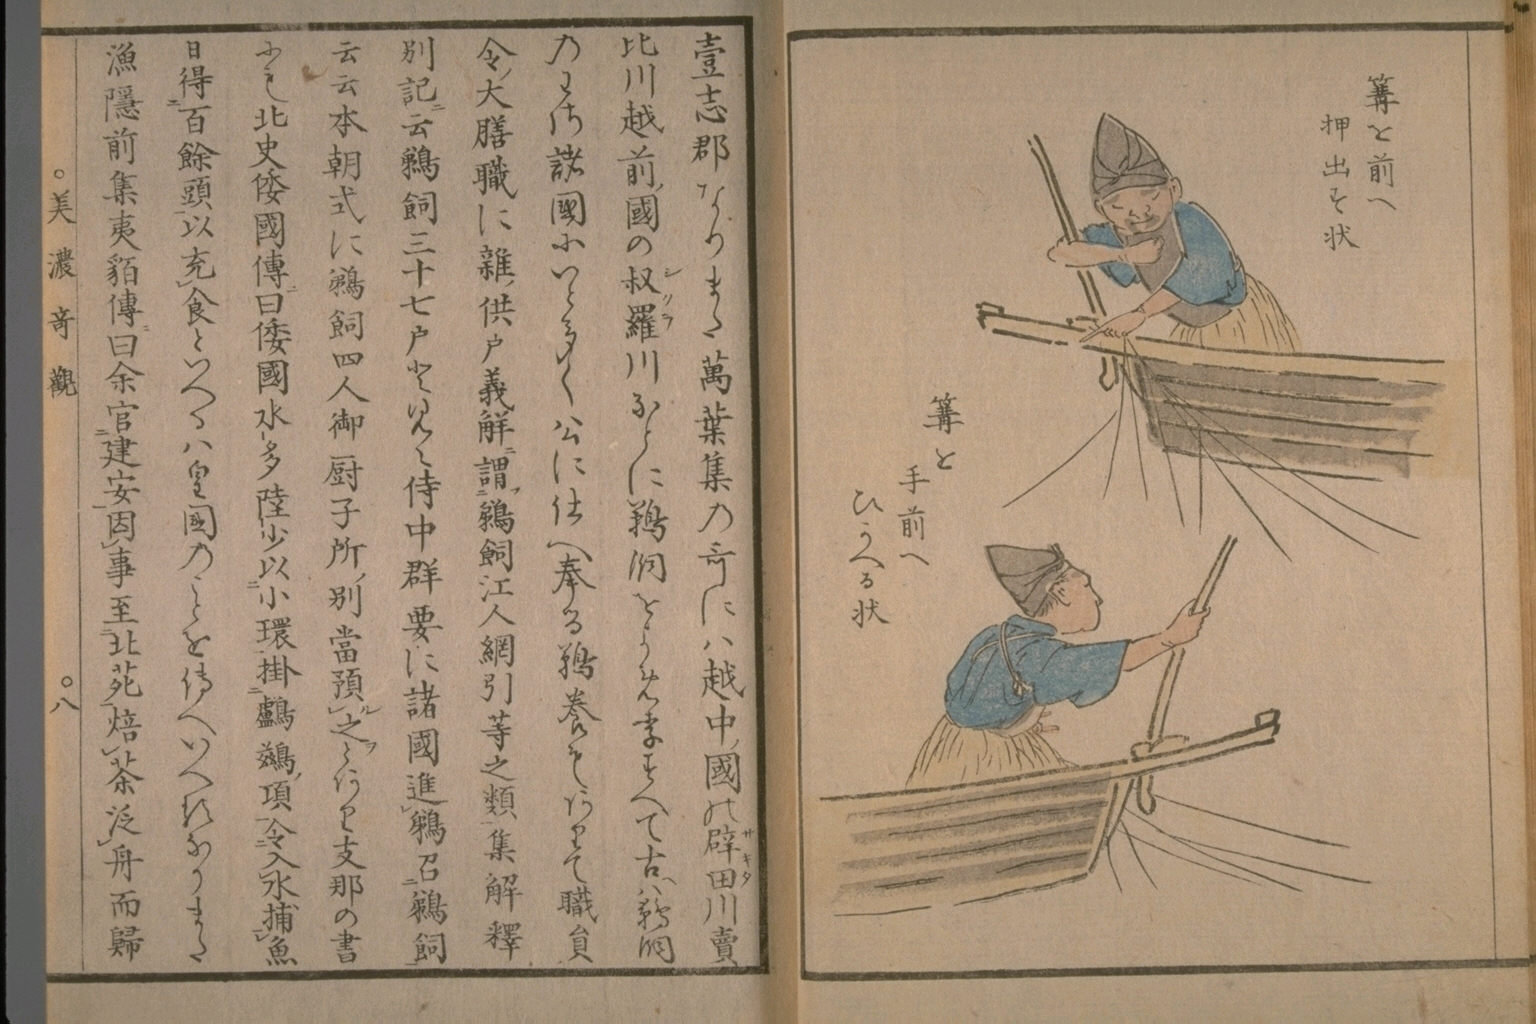 篝を前へ
押出す状
篝を
手前へ
ひかへる状
壹志郡なりまた萬葉集の哥にハ越中國の辟田川賣
サキタ
比川越前國の叔羅川などに鵜飼をよめり
シクラ
すへて古ハ鵜飼
の
諸國に
多く公に仕へ奉る鵜養もありて職員
令大膳職に雜供戸義解謂鵜飼江人網引等之類集解釋
別記云鵜飼三十七戸と見え侍中群要に諸國進鵜召鵜飼
云云本朝式に鵜飼四人御厨子所別當預之とあり支那の書
にも北史倭國傳曰倭國水多陸少以小環掛鸕鷀項令入水捕魚
日得百餘頭以充食といへるハ皇國のことを傳へいへるなりまた
漁隱前集夷貊傳曰余官建安因事至北苑焙茶泛舟而歸
美濃奇觀
八